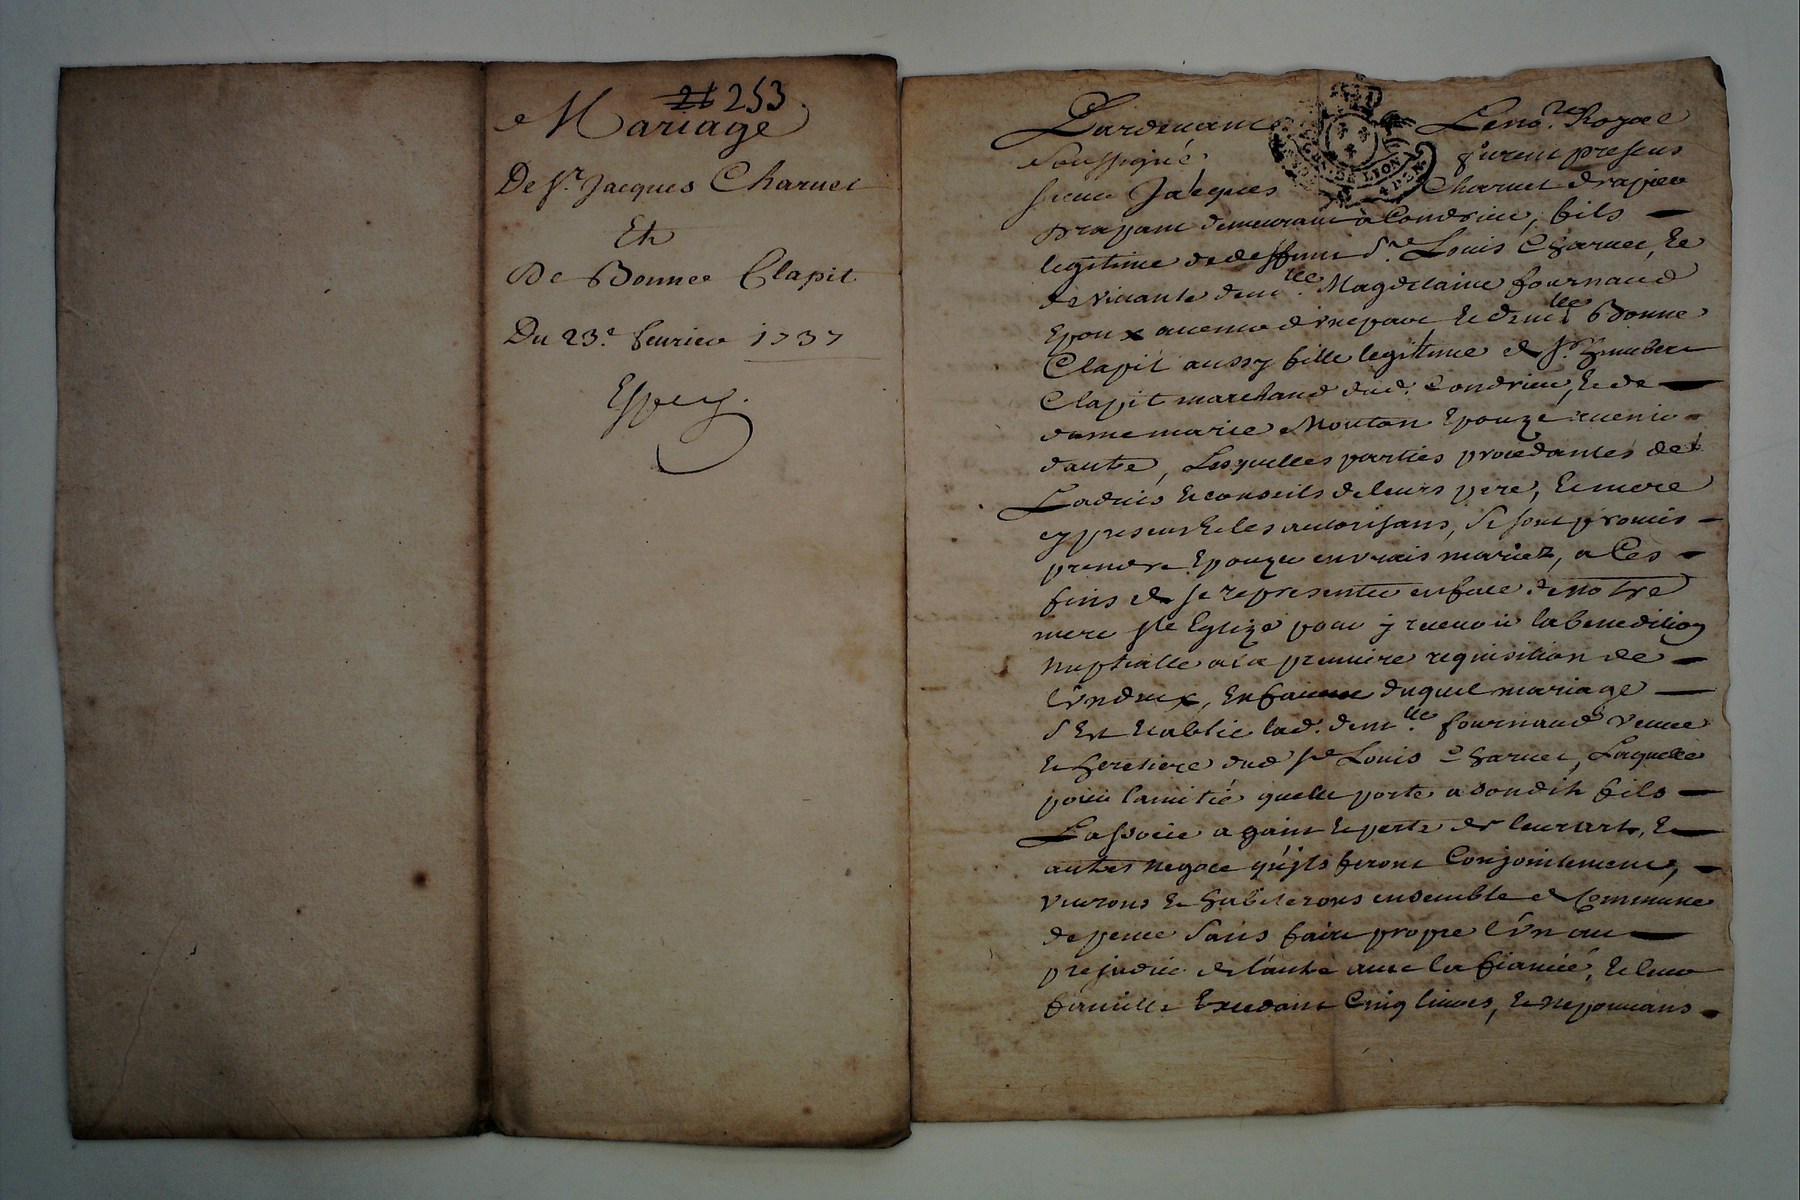 26 253
Mariage
De Sr. Jacques Charvet
Et
De Bonne Clapit
Du 23e fevrier 1737
Expey.
Pardevant Le no.re Royal
Soussigné furent presens
sieur Jacques Charvet drapier
drapant demeurant a Condrieu, fils
legitime de deffunt Sr. Louis Charvet, et
de vivante dem.lle Magdelaine fournaud
Epoux avenir d'une part, et dem.lle Bonne
Clapit aussy fille legitime de Sr. himbert
Clapit marchand dud. Condrieu, et de
dame marie Mouton Epouze avenir
d'autre, Lesquelles parties procedantes de
L'advis et conseils de leurs pere, et mere
cy presens et les autorisans, se sont promis
prendre Epouzer en vrais mariez, a Ces
fins de se representer en face de notre
mere Ste Eglize pour y recevoir la benedition
nuptialle a la premiere requisition de
l'un deux, En faveur duquel mariage
s'Est Etablie lad. dem.lle fournaud veuve
et heretiere dud Sr Louis Charvet, Laquelle
pour l'amitié quelle porte a sondit fils
L'associe a gain et perte de leur art, et
autres negoce qu'jls feront Conjointement,
vivrons et habiterons ensemble a Commune
depence Sans faire propre l'un au
prejudice de l'autre avec la fiancée, et leur
famille Excedant Cinq livres, et ne pouvans